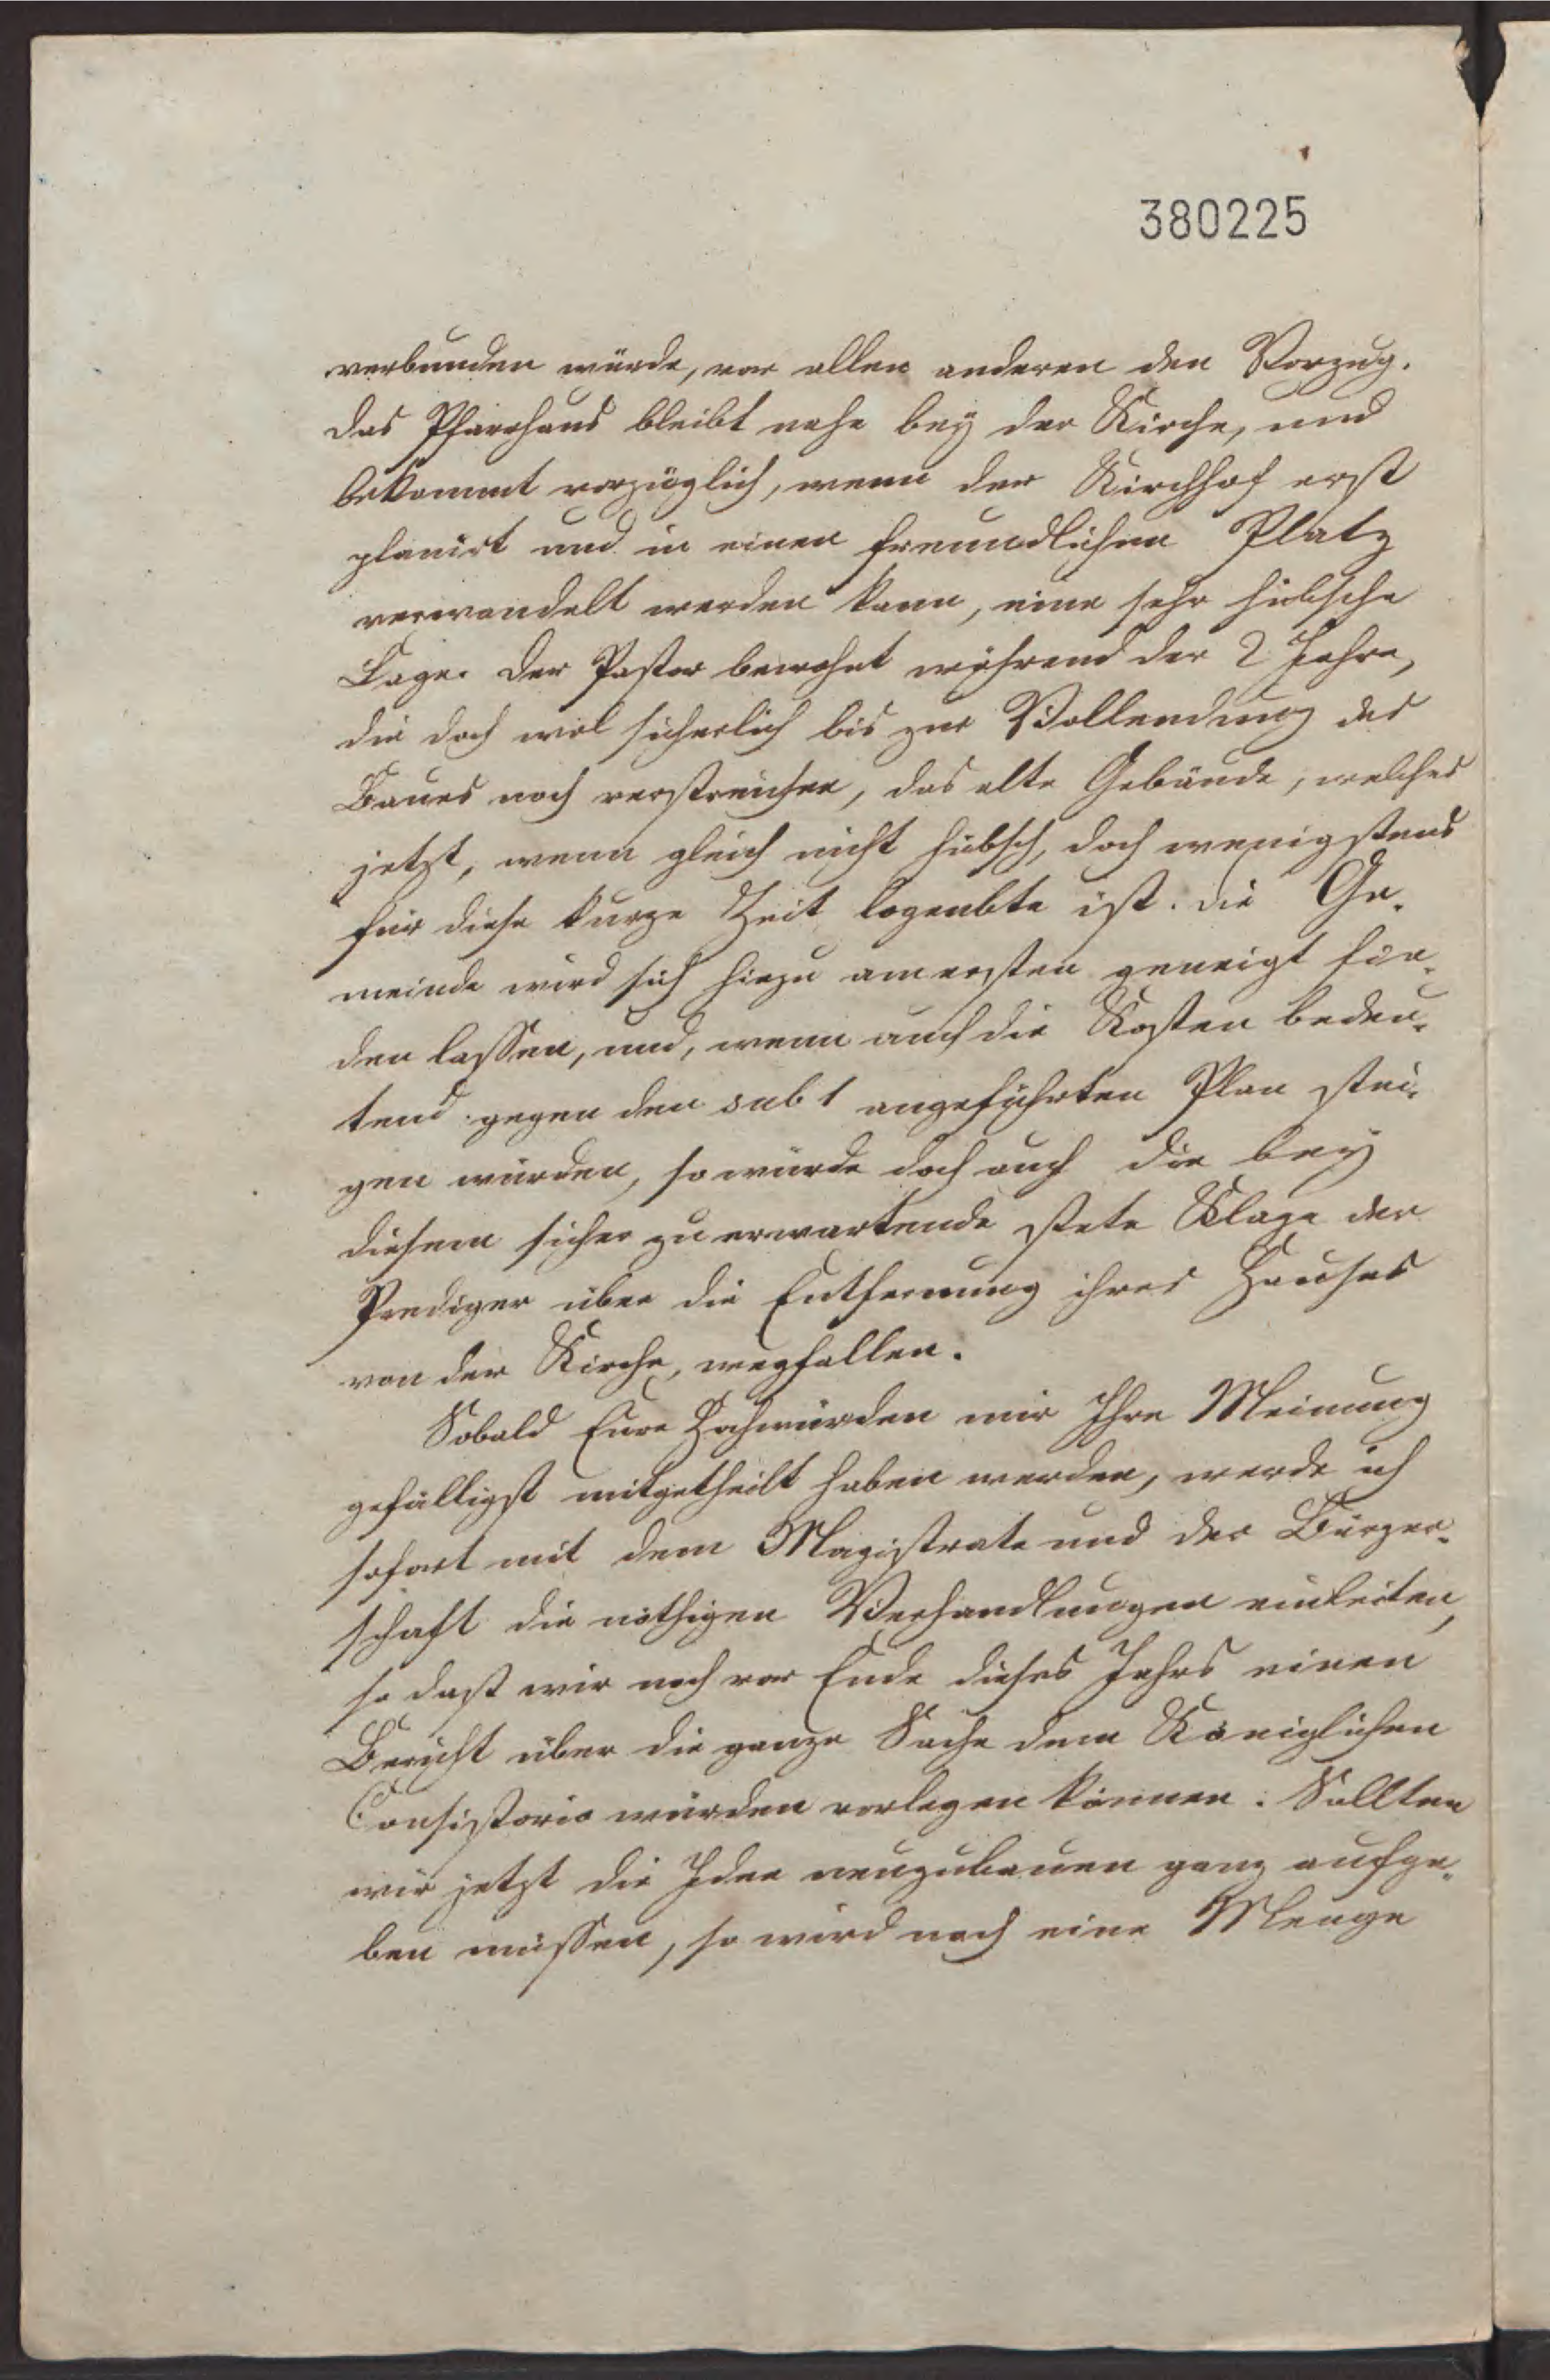 380225
verbunden würde, vor allen anderen den Vorzug.
Das Pfarrhaus bleibt nahe bey der Kirche, und
bekommt vorzüglich, wenn der Kirchhof erst
planirt und in einen freundlichen Platz
verwandelt werden kann, eine sehr hübsche
Lage. Der Pastor bewohnt während der 2 Jahre,
die doch wol sicherlich bis zur Vollendung des
Baues noch verstreichen, das alte Gebäude, welches
jetzt, wenn gleich nicht hübsch, doch wenigstens
für diese kurze Zeit logeable ist. Die Ge-
meinde wird sich hiezu am ersten geneigt fin-
den lassen, und, wenn auch die Kosten bedeu-
tend gegen den sub 1 angeführten Plan stei-
gen würden, so würde doch auch die bey
diesem sicher zu erwartende stete Klage der
Prediger über die Entfernung ihres Hauses
von der Kirche, wegfallen.
Sobald Eure Hochwürden mir Ihre Meinung
gefälligst mitgetheilt haben werden, werde ich
sofort mit dem Magistrate und der Bürger-
schaft die nöthigen Verhandlungen einleiten,
so dast wir noch vor Ende dieses Jahrs einen
Bericht über die ganze Sache dem Königlichen
Consistorio würden vorlegen können. Sollten
wir jetzt die Idee neuzubauen ganz aufge-
ben müssen, so wird noch eine Menge